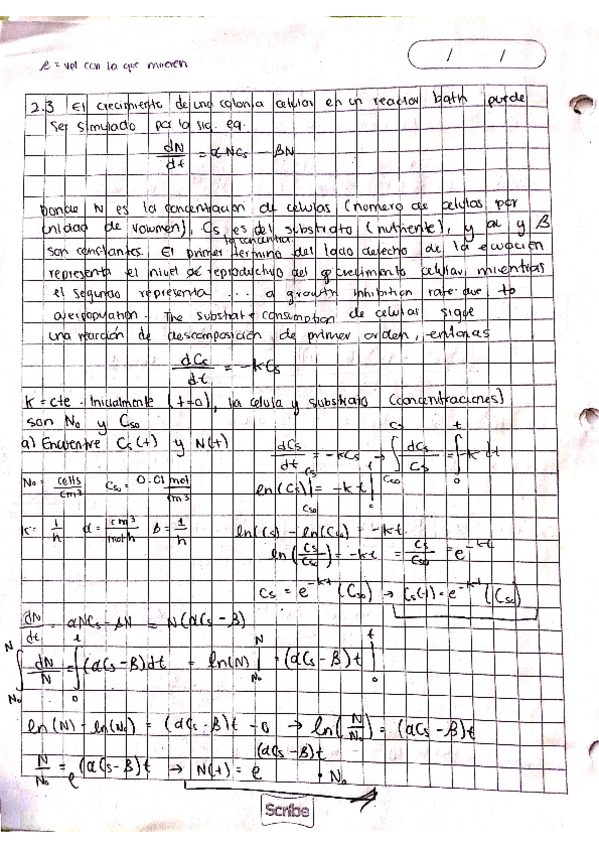 = vel con la que mueren
/ /
2.3 El crecimiento de una colonia celular en un reactor bath puede
ser simulado por la sig. eq.
dN/dt = αNCs - βN
Donde N es la concentración de celulas (numero de celulas por
unidad de volumen), Cs, es del substrato (nutriente), y α y β
la concentra.
son constantes. El primer termino del lado derecho de la ecuación
representa el nivel de reproductivo del crecimiento celular, mientras
el segundo representa ... a growth inhibition rate due to
overpopulation. The substrate consumption de celulas sigue
una reacción de descomposición de primer orden, entonces
dCs/dt = -kCs
k = cte. Inicialmente (t=0), la celula y substrato (concentraciones)
son N₀ y Cso
a) Encuentre Cs(t) y N(t)
dCs/dt = -kCs → ∫Cso^Cs dCs/Cs = ∫0^t -k dt
N₀ = cells/cm³ Cso = 0.01 mol/cm³
ln(Cs)|Cso^Cs = -kt|0^t
k = 1/h α = cm³/mol h β = 1/h
ln(Cs) - ln(Cso) = -kt
ln(Cs/Cso) = -kt = Cs/Cso = e^-kt
Cs = e^-kt (Cso) → Cs(t) = e^-kt (Cso)
dN/dt = αNCs - βN = N(αCs - β)
∫N₀^N dN/N = ∫0^t (αCs - β)dt = ln(N)|N₀^N = (αCs - β)t|0^t
ln(N) - ln(N₀) = (αCs - β)t - 0 → ln(N/N₀) = (αCs - β)t
N/N₀ = e^(αCs - β)t → N(t) = e^(αCs - β)t · N₀
Scribe